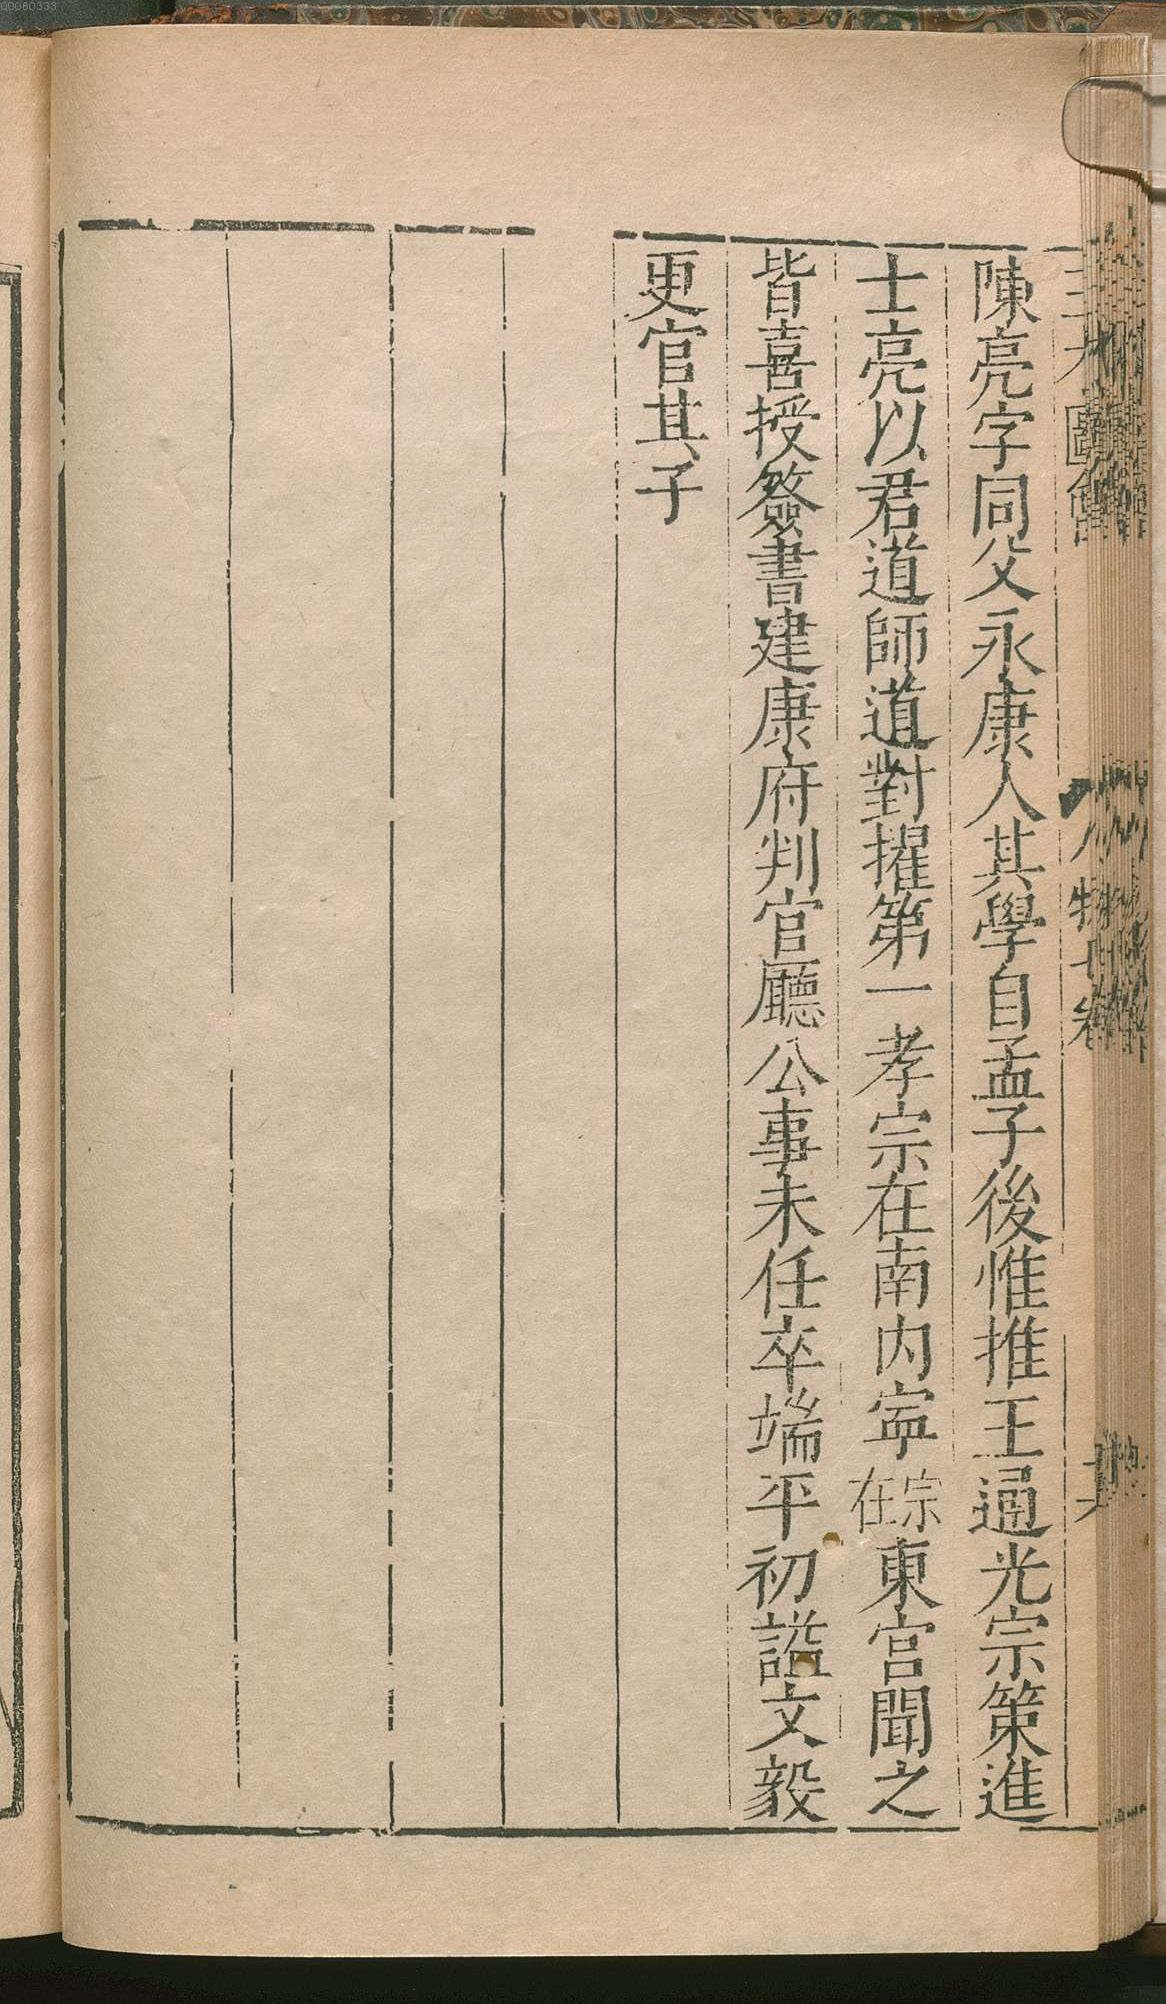 陳亮字同父永康人其學自孟子後惟推王通光宗策進
士亮以君道師道對擢第一孝宗在南内寧宗在東宫聞之
皆喜授簽書建康府判官廳公事未任卒端平初謚文毅
更官其子
三才圖會 人物七卷
00060333